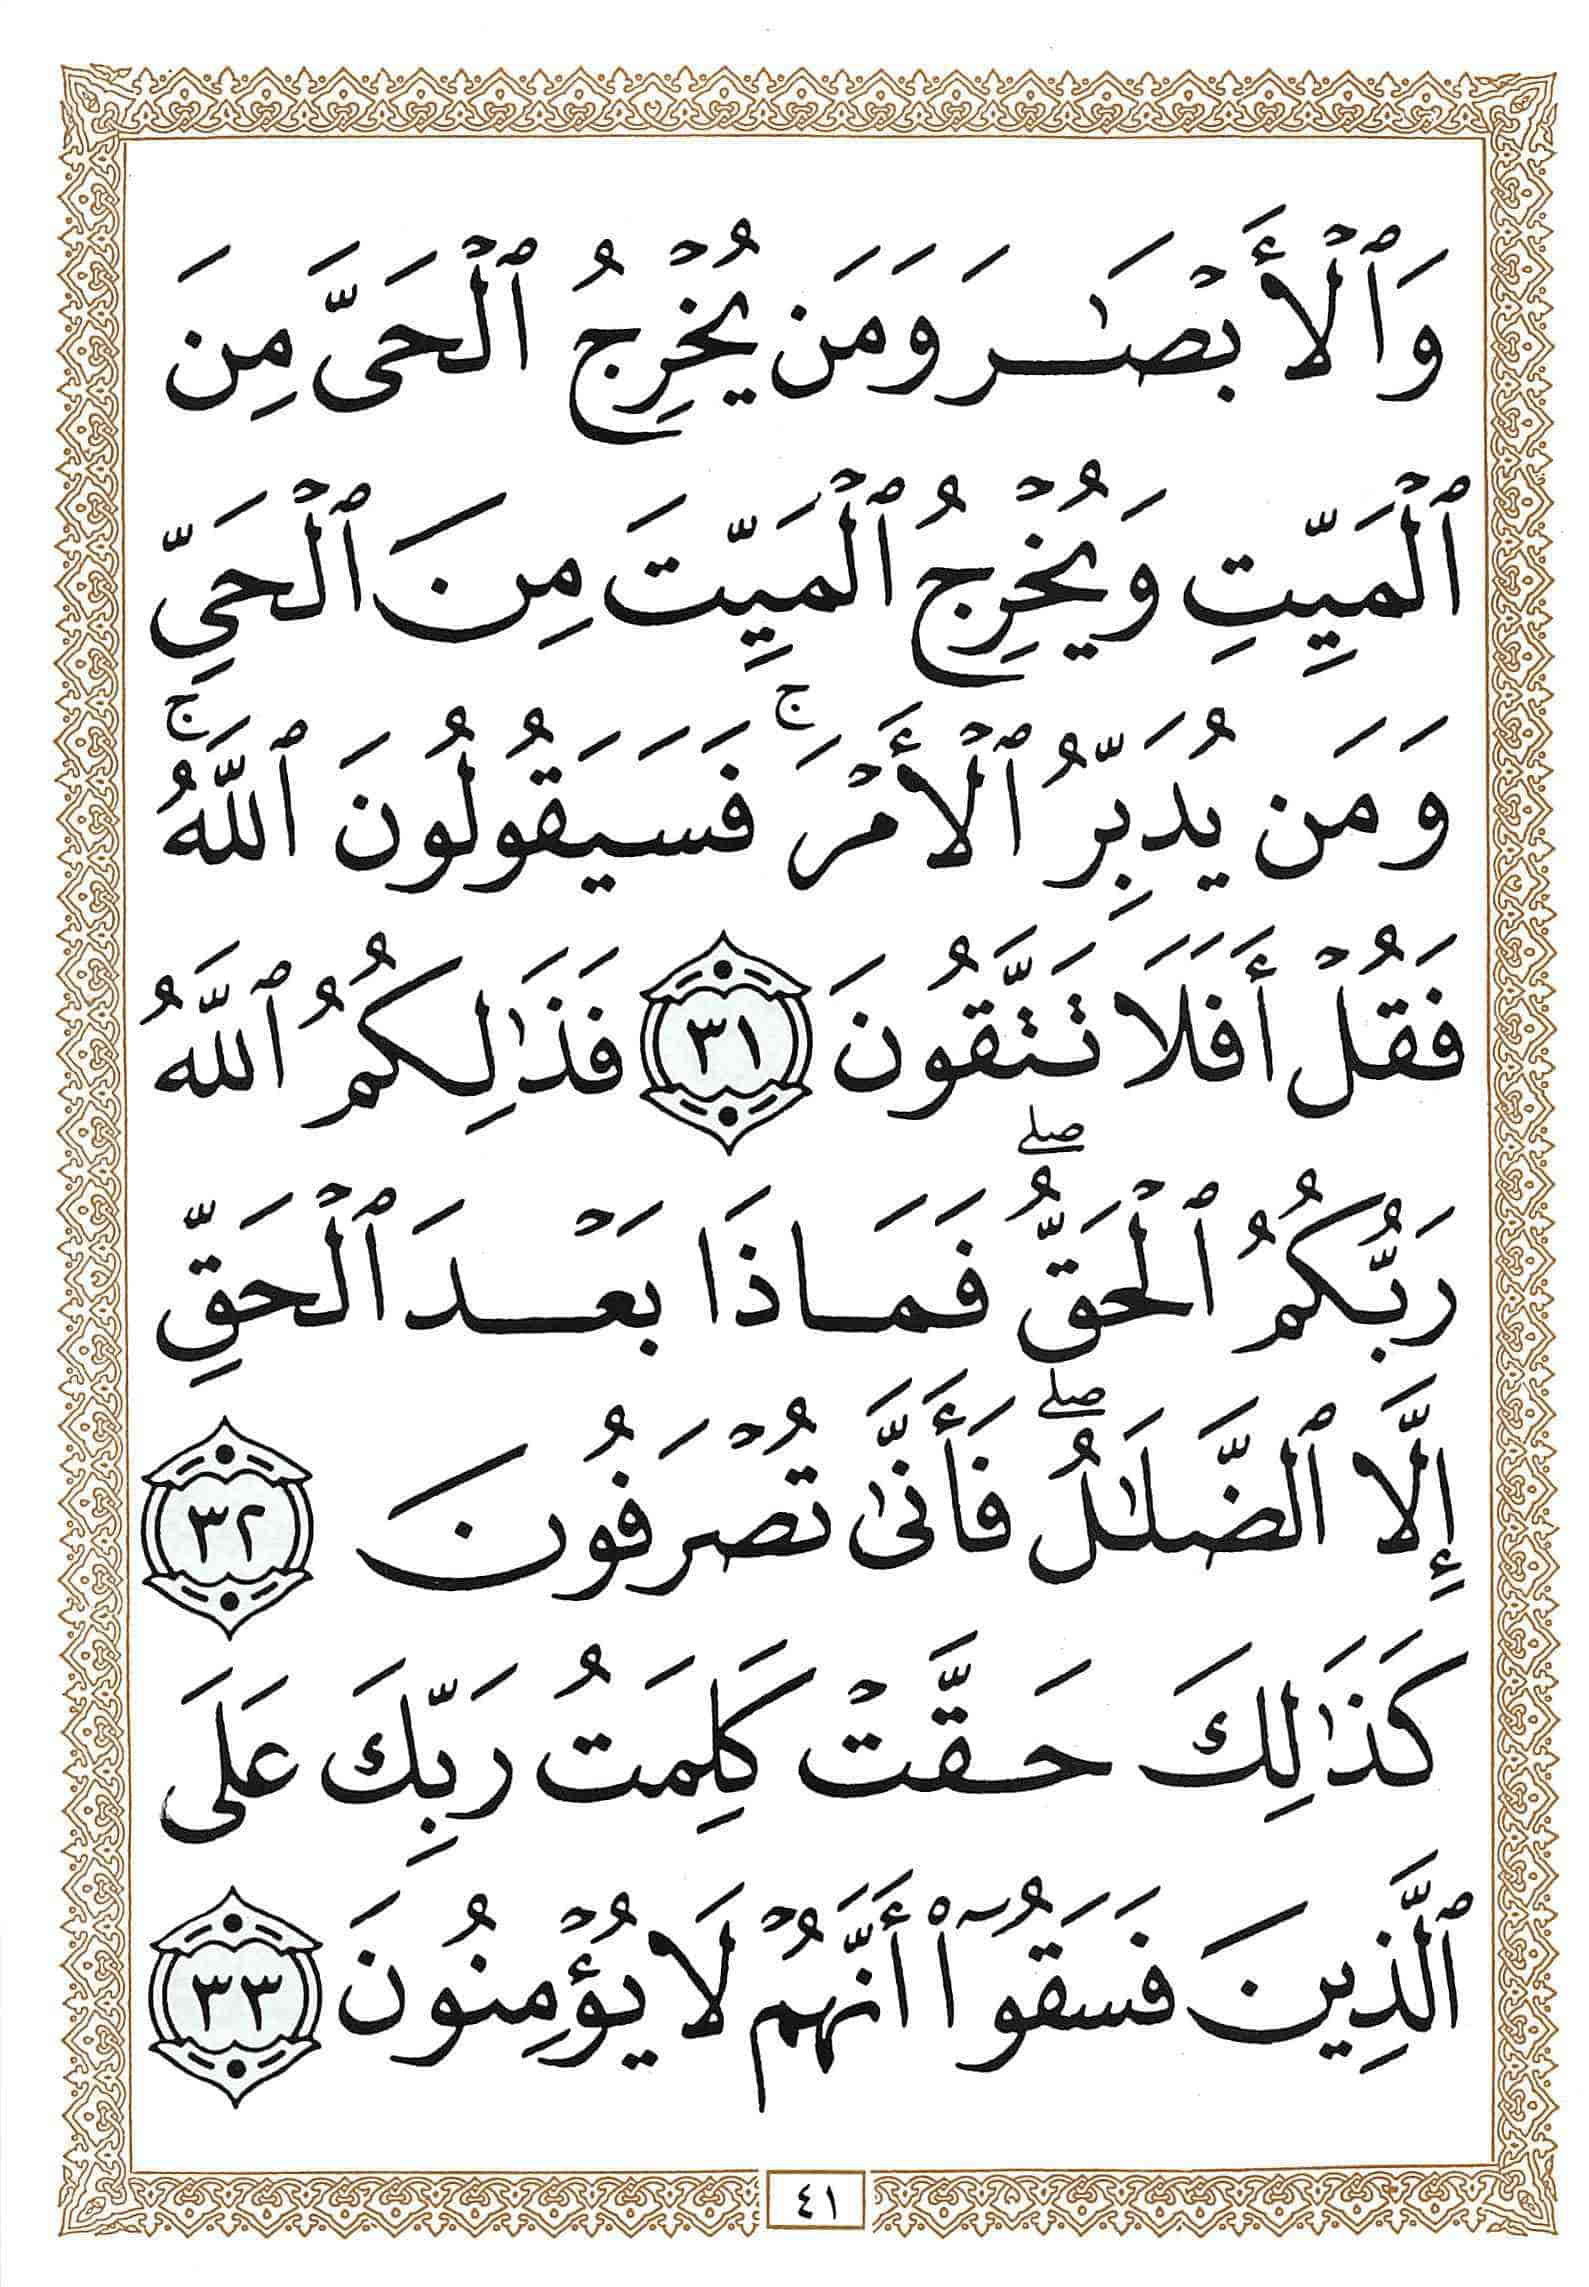 وَٱلْأَبْصَـٰرَ وَمَن يُخْرِجُ ٱلْحَىَّ مِنَ
ٱلْمَيِّتِ وَيُخْرِجُ ٱلْمَيِّتَ مِنَ ٱلْحَىِّ
وَمَن يُدَبِّرُ ٱلْأَمْرَ ۚ فَسَيَقُولُونَ ٱللَّهُ ۚ
فَقُلْ أَفَلَا تَتَّقُونَ ٣١ فَذَٰلِكُمُ ٱللَّهُ
رَبُّكُمُ ٱلْحَقُّ ۖ فَمَاذَا بَعْدَ ٱلْحَقِّ
إِلَّا ٱلضَّلَـٰلُ ۖ فَأَنَّىٰ تُصْرَفُونَ ٣٢
كَذَٰلِكَ حَقَّتْ كَلِمَتُ رَبِّكَ عَلَى
ٱلَّذِينَ فَسَقُوٓا۟ أَنَّهُمْ لَا يُؤْمِنُونَ ٣٣
٤١